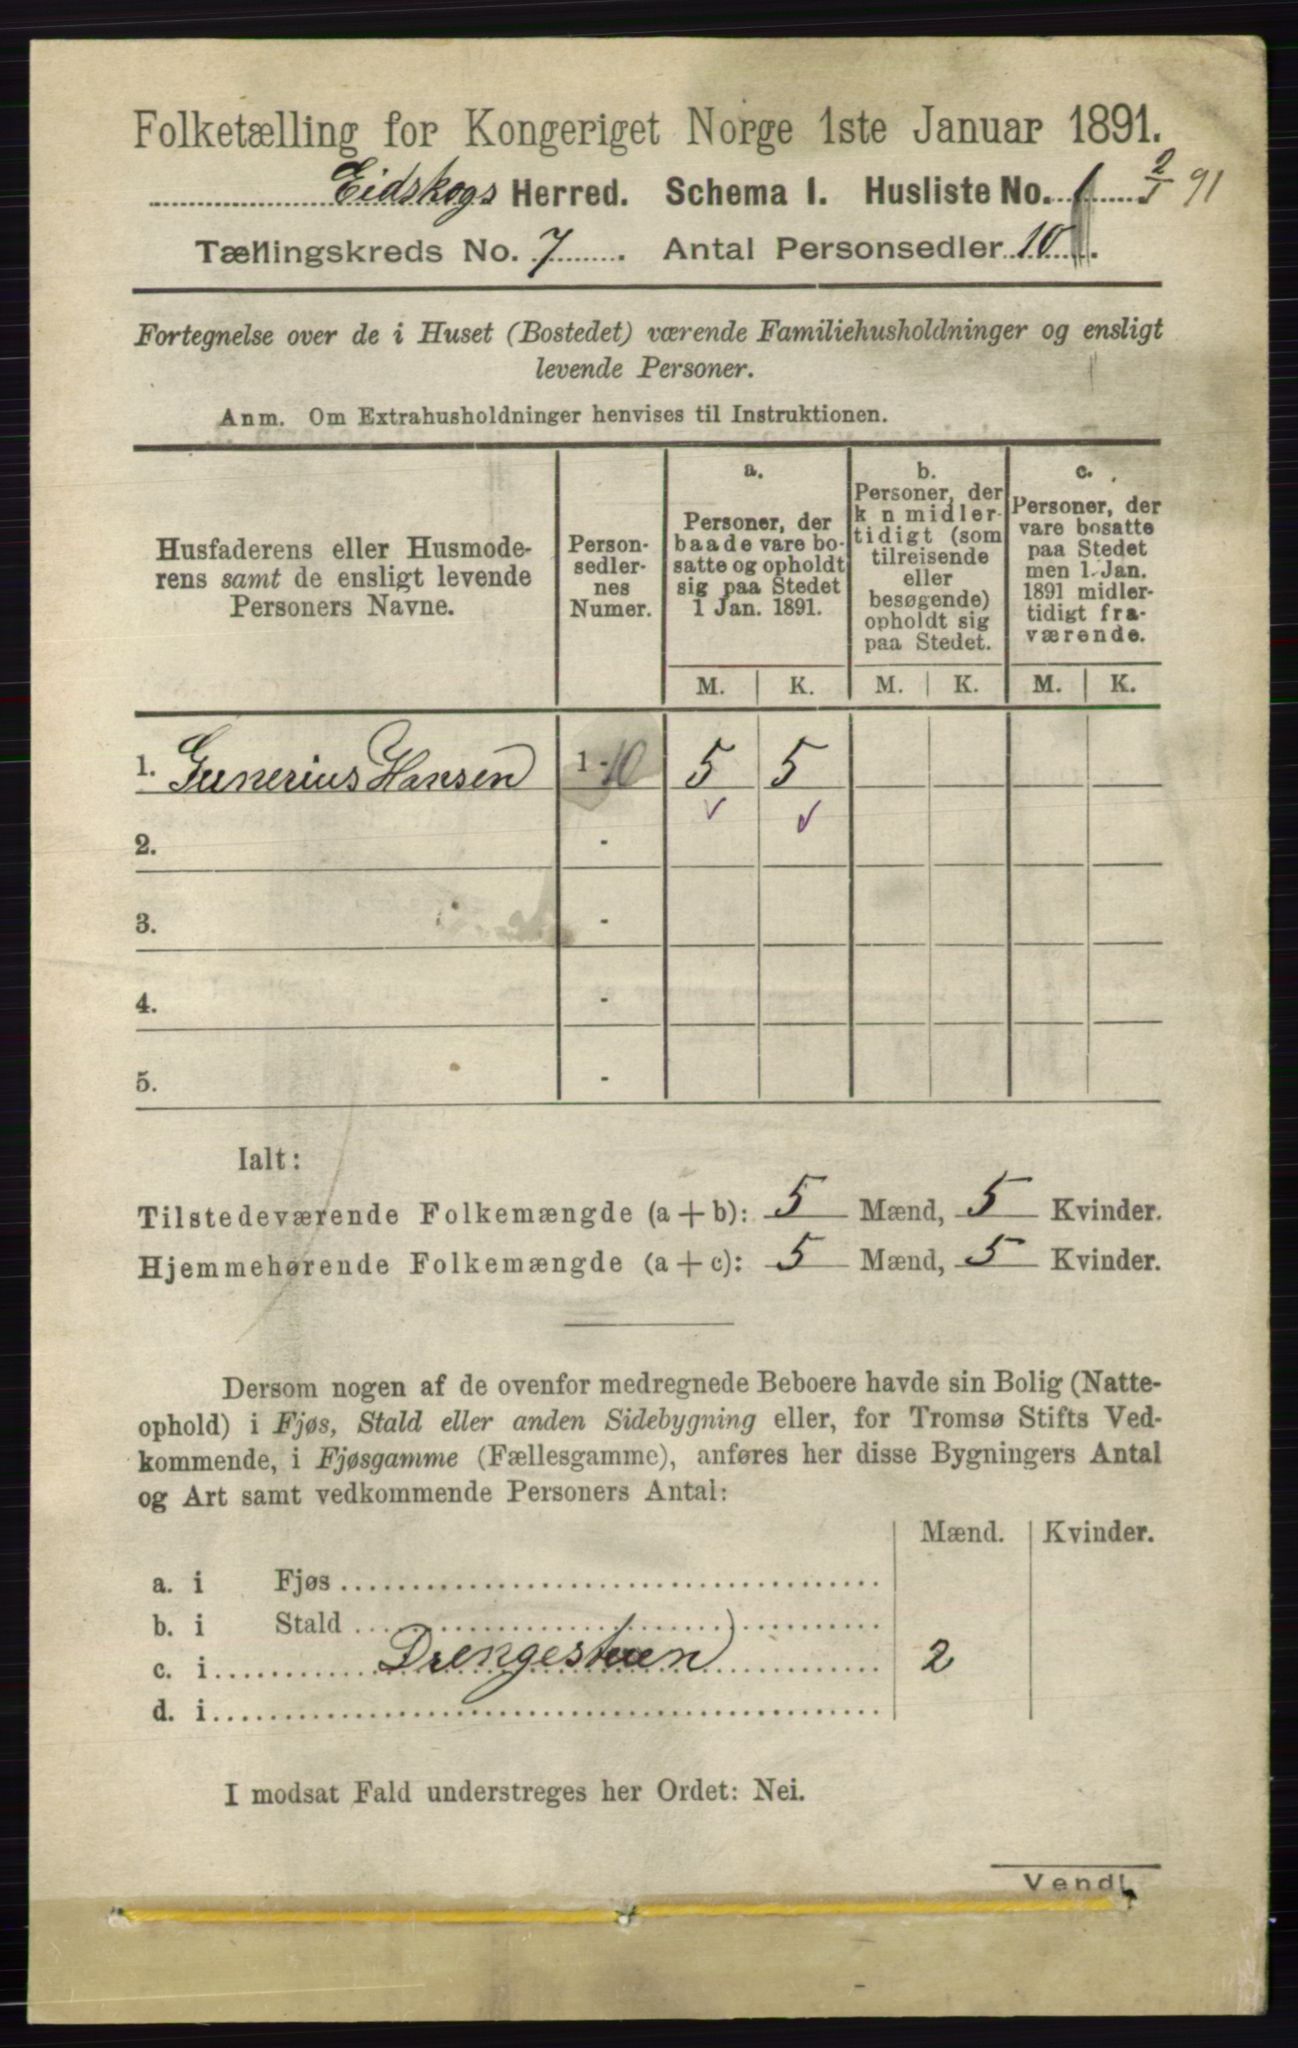 Folketælling for Kongeriget Norge 1ste Januar 1891.
Eidskogs Herred. Schema I. Husliste No. 1 2/1 91
Tællingskreds No. 7 . Antal Personsedler 10 .
Fortegnelse over de i Huset (Bostedet) værende Familiehusholdninger og ensligt
levende Personer.
Anm. Om Extrahusholdninger henvises til Instruktionen.
Husfaderens eller Husmode-
rens samt de ensligt levende
Personers Navne.
Person-
sedler-
nes
Numer.
a.
Personer, der
baade vare bo-
satte og opholdt
sig paa Stedet
1 Jan. 1891.
b.
Personer, der
k n midler-
tidigt (som
tilreisende
eller
besøgende)
opholdt sig
paa Stedet.
c.
Personer, der
vare bosatte
paa Stedet
men 1. Jan.
1891 midler-
tidigt fra-
værende.
M. K. M. K. M. K.
1. Gunerius Hansen 1 - 10 5 5
2. -
3. -
4. -
5. -
Ialt:
Tilstedeværende Folkemængde (a + b): 5 Mænd, 5 Kvinder.
Hjemmehørende Folkemængde (a + c): 5 Mænd, 5 Kvinder.
Dersom nogen af de ovenfor medregnede Beboere havde sin Bolig (Natte-
ophold) i Fjøs, Stald eller anden Sidebygning eller, for Tromsø Stifts Ved-
kommende, i Fjøsgamme (Fællesgamme), anføres her disse Bygningers Antal
og Art samt vedkommende Personers Antal:
Mænd. Kvinder.
a. i Fjøs
b. i Stald
c. i Drengestuen 2
d. i
I modsat Fald understreges her Ordet: Nei.
Vend!